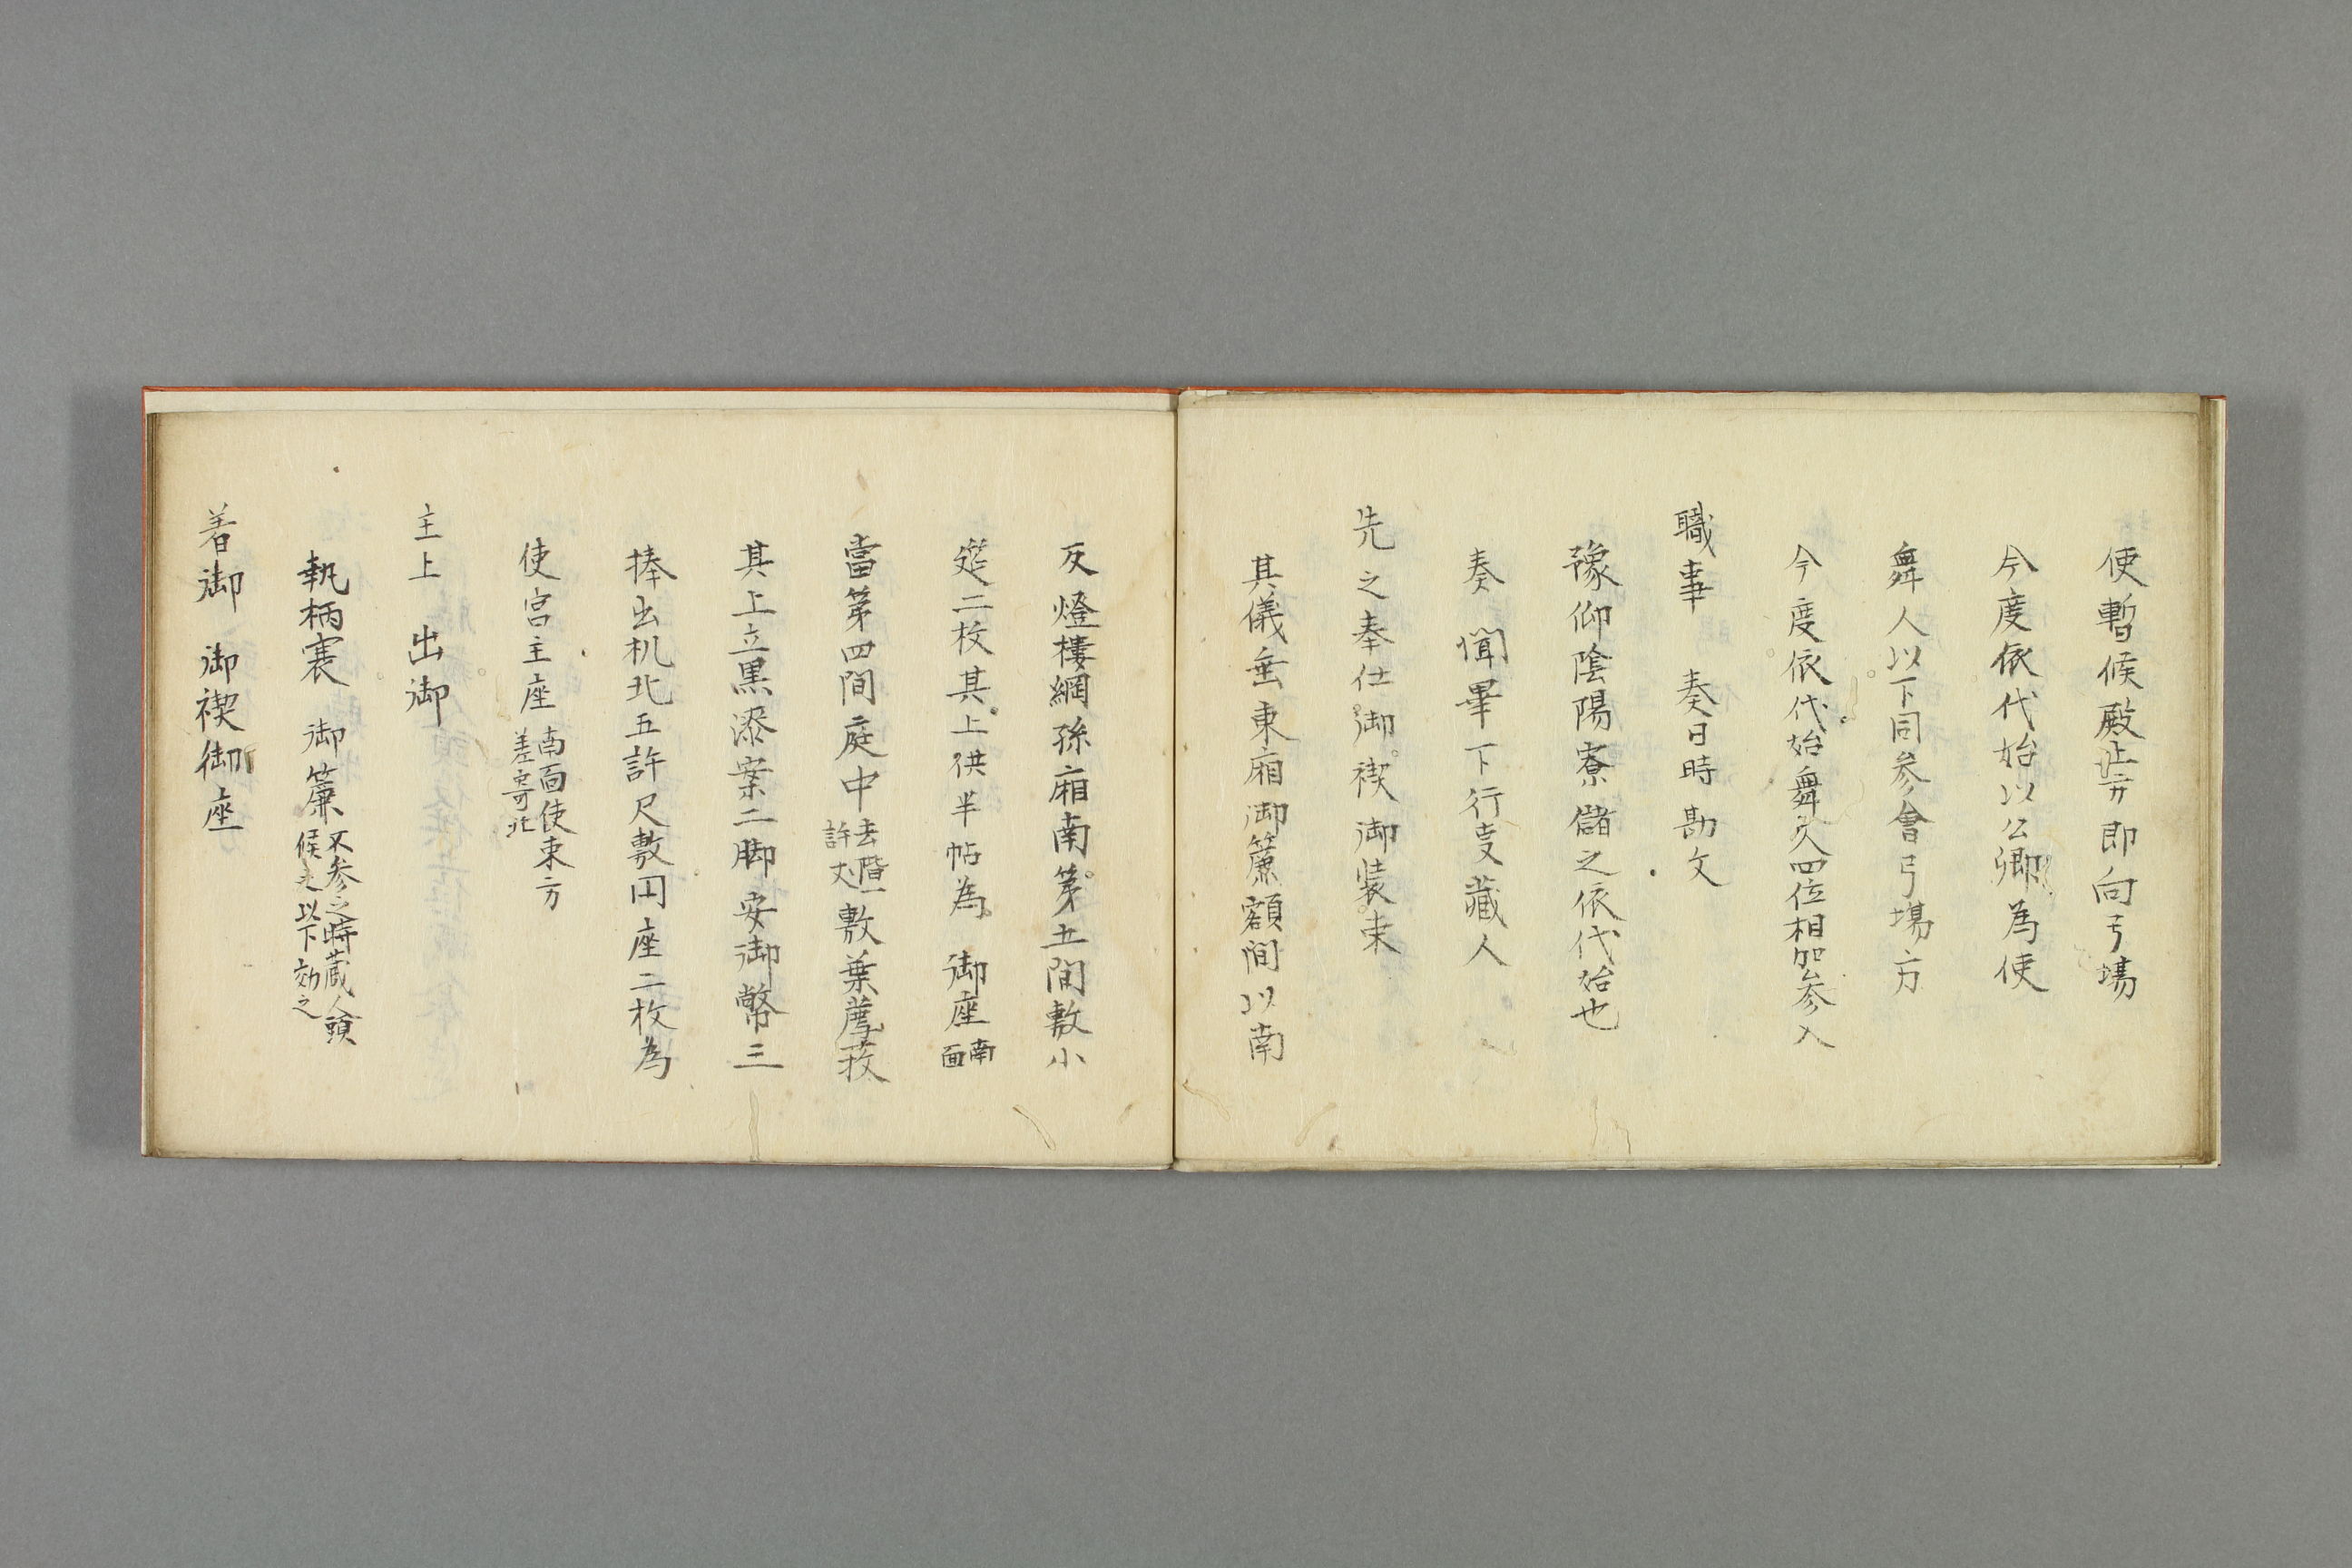 使暫候殿上方即向弓場
今度依代始以公卿為使
舞人以下同参會弓場方
今度依代始舞人四位相加参入
職事　奏日時勘文
豫仰陰陽寮儲之依代始也
奏　聞畢下行事蔵人
先之奉仕御禊御装束
其儀垂東廂御簾額間以南
反燈樓綱孫廂南第五間敷小
筵二枚其上供半帖為　御座南面
當第四間庭中去階一許丈敷葉薦
其上立黒漆案二脚安御幣三
捧出机北五許尺敷円座二枚為
使宮主座南面使東方差寄北
主上　出御
執柄褰　御簾不参之時蔵人頭候之以下効之
着御　御禊御座